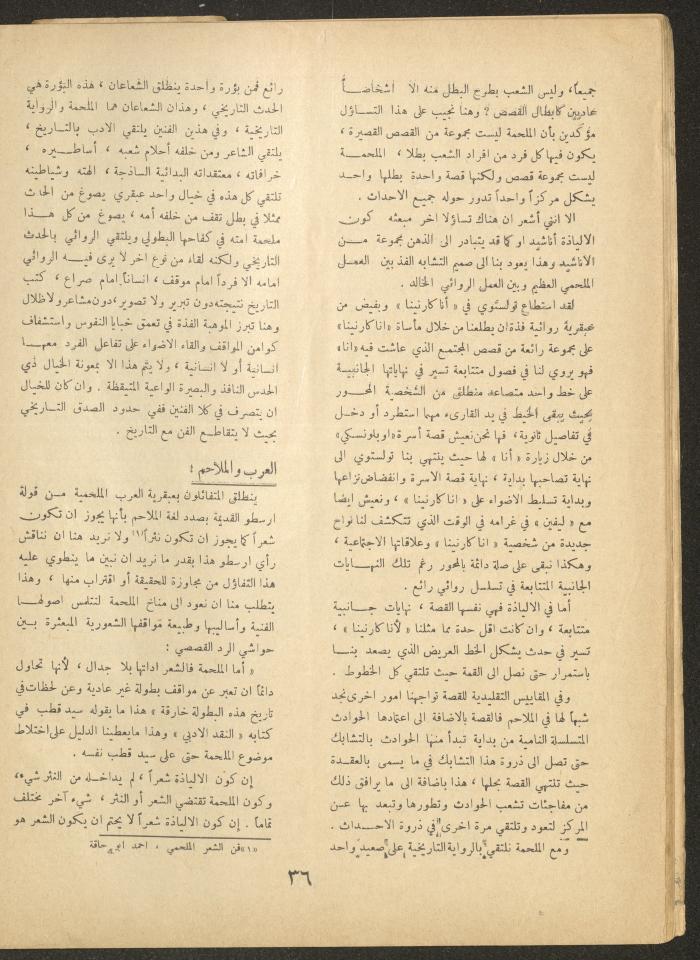 جميعاً، وليس الشعب بطرح البطل منه الا أشخاصاً
عاديين كابطال القصص ? وهنا نجيب على هذا التساؤل
مؤكدين بأن الملحمة ليست مجموعة من القصص القصيرة ،
يكون فيها كل فرد من افراد الشعب بطلا ، الملحمة
ليست مجموعة قصص ولكنها قصة واحدة بطلها واحد
يشكل مركزاً واحداً تدور حوله جميع الاحداث .
الا انني أشعر ان هناك تساؤلا اخر مبعثه كون
الالياذة أناشيد او كما قد يتبادر الى الذهن مجموعة من
الاناشيد وهذا يعود بنا الى صميم التشابه الفذ بين العمل
الملحمي العظيم وبين العمل الروائي الخالد .
لقد استطاع تولستوي في « أنا كارنينا » وبفيض من
عبقرية روائية فذة ان يطلعنا من خلال مأساة «انا كارنينا»
على مجموعة رائعة من قصص المجتمع الذي عاشت فيه «انا»
فهو يروي لنا في فصول متتابعة تسير في نهاياتها الجانبية
على خط واحد متصاعد منطلق من الشخصية المحور
بحيث يبقى الخيط في يد القارىء مهما استطرد أو دخل
في تفاصيل ثانوية ، فها نحن نعيش قصة أسرة «اوبلونسكي»
من خلال زيارة « أنا » لها حيث ينتهي بنا تولستوي الى
نهاية تصاحبها بداية ، نهاية قصة الاسرة وانفضاض نزاعها
وبداية تسليط الاضواء على « انا كارنينا » ، ونعيش ايضا
مع « ليفين » في غرامه في الوقت الذي تتكشف لنا نواح
جديدة من شخصية « انا كارنينا » وعلاقاتها الاجتماعية ،
وهكذا نبقى على صلة دائمة بالمحور رغم تلك النهايات
الجانبية المتتابعة في تسلسل روائي رائع .
أما في الالياذة فهي نفسها القصة ، نهايات جانبية
متتابعة ، وان كانت اقل حدة مما مثلنا « لأنا كارنينا » ،
تسير في حدث يشكل الخط العريض الذي يصعد بنا
باستمرار حتى نصل الى القمة حيث تلتقي كل الخطوط .
وفي المقاييس التقليدية للقصة تواجهنا امور اخرى نجد
شبهاً لها في الملاحم فالقصة بالاضافة الى اعتمادها الحوادث
المتسلسلة النامية من بداية تبدأ منها الحوادث بالتشابك
حتى تصل الى ذروة هذا التشابك في ما يسمى بالعقدة
حيث تنتهي القصة بحلها ، هذا باضافة الى ما يرافق ذلك
من مفاجئات تشعب الحوادث وتطورها وتبعد بها عن
المركز لتعود وتلتقي مرة اخرى في ذروة الاحداث .
ومع الملحمة نلتقي بالرواية التاريخية على صعيد واحد
رائع فمن بؤرة واحدة ينطلق الشعاعان ، هذه البؤرة هي
الحدث التاريخي ، وهذان الشعاعان هما الملحمة والرواية
التاريخية ، وفي هذين الفنين يلتقي الادب بالتاريخ ،
يلتقي الشاعر ومن خلفه أحلام شعبه ، أساطيره ،
خرافاته ، معتقداته البدائية الساذجة ، الهته وشياطينه
تلتقي كل هذه في خيال واحد عبقري يصوغ من الحادث
ممثلا في بطل تقف من خلفه أمه ، يصوغ من كل هذا
ملحمة امته في كفاحها البطولي ويلتقي الروائي بالحدث
التاريخي ولكنه لقاء من نوع اخر لا يرى فيه الروائي
امامه الا فرداً امام موقف ، انساناً امام صراع ، كتب
التاريخ نتيجته دون تبرير ولا تصوير ، دون مشاعر ولا ظلال
وهنا تبرز الموهبة الفذة في تعمق خبايا النفوس واستشفاف
كوامن المواقف والقاء الاضواء على تفاعل الفرد معها
انسانية أو لا انسانية ، ولا يتم هذا الا بمعونة الخيال ذي
الحدس النافذ والبصيرة الواعية المتيقظة . وان كان للخيال
ان يتصرف في كلا الفنين ففي حدود الصدق التاريخي
بحيث لا يتقاطع الفن مع التاريخ .
العرب والملاحم :
ينطلق المتفائلون بعبقرية العرب الملحمية من قولة
ارسطو القديمة بصدد لغة الملاحم بأنها يجوز ان تكون
شعراً كما يجوز ان تكون نثراً(١) ولا نريد هنا ان نناقش
رأي ارسطو هذا بقدر ما نريد ان نبين ما ينطوي عليه
هذا التفاؤل من مجاوزة للحقيقة أو اقتراب منها ، وهذا
يتطلب منا ان نعود الى مناخ الملحمة لنتلمس اصولها
الفنية وأساليبها وطبيعة مواقفها الشعورية المبعثرة بين
حواشي الرد القصصي :
« أما الملحمة فالشعر اداتها بلا جدال ، لأنها تحاول
دائماً ان تعبر عن مواقف بطولة غير عادية وعن لحظات في
تاريخ هذه البطولة خارقة » هذا ما يقوله سيد قطب في
كتابه « النقد الادبي » وهذا ما يعطينا الدليل على اختلاط
موضوع الملحمة حتى على سيد قطب نفسه .
إن كون الالياذة شعراً ، لم يداخله من النثر شيء،
وكون الملحمة تقتضي الشعر أو النثر ، شيء آخر مختلف
تماماً . إن كون الالياذة شعراً لا يحتم ان يكون الشعر هو
«١» فن الشعر الملحمي ، احمد ابو حاقة
٣٦